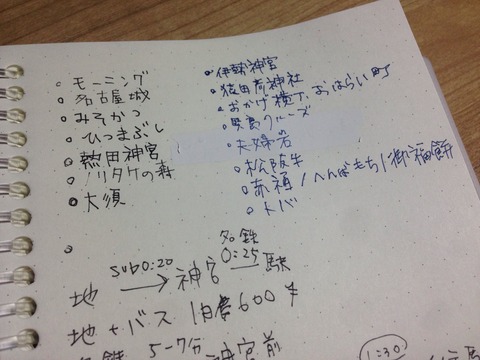 モーニング
名古屋城
みそかつ
ひつまぶし
熱田神宮
ノリタケの森
大須
伊勢神宮
猿田彦神社
おかげ横丁、おはらい町
クルーズ
夫婦岩
松阪牛
赤福/へんばもち/御福餅
トバ
名鉄
sub0:20 0:25
地 → 神宮 — 駅
地+バス 1日券600
名鉄 5-7分 神宮前
1:30